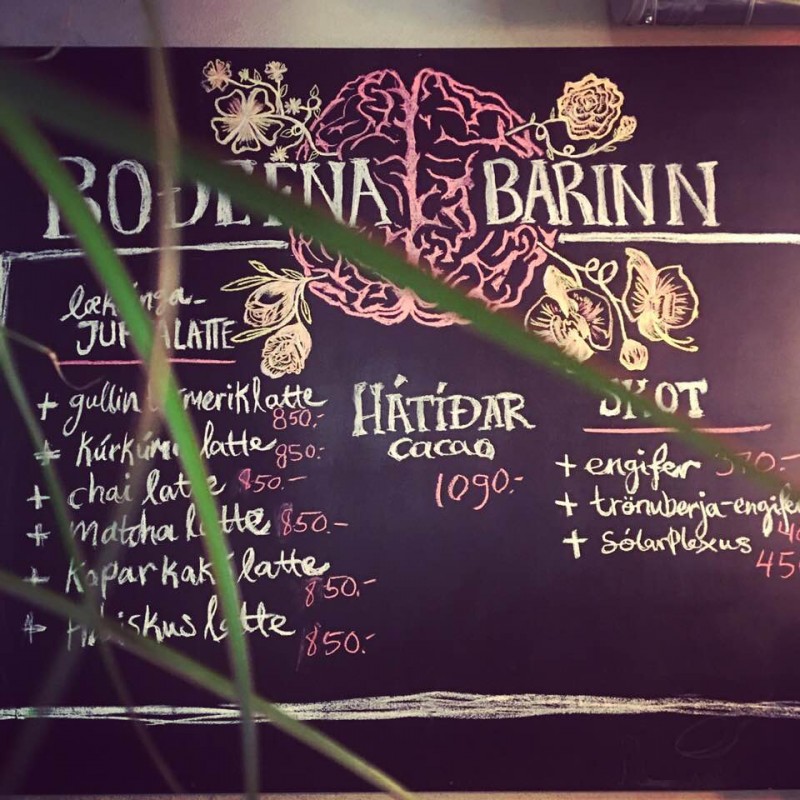 BOÐEFNA BARINN
lækninga-
JURTALATTE
+ gullin turmeriklatte
850.-
+ kúrkúma latte 850.-
+ chai latte 850.-
+ Matcha latte 850.-
+ Kaparkakó latte
850.-
+ Hibiskus latte
850.-
HÁTÍÐAR
cacao
1090.-
SKOT
+ engifer 370.-
+ trönuberja-engifer
+ SólarPlexus